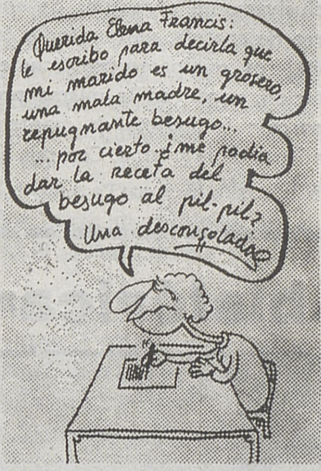 Querida Elena Francis:
le escribo para decirla que
mi marido es un grosero,
una mala madre, un
repugnante besugo...
... por cierto ¿me podia
dar la receta del
besugo al pil-pil?
Una desconsolada